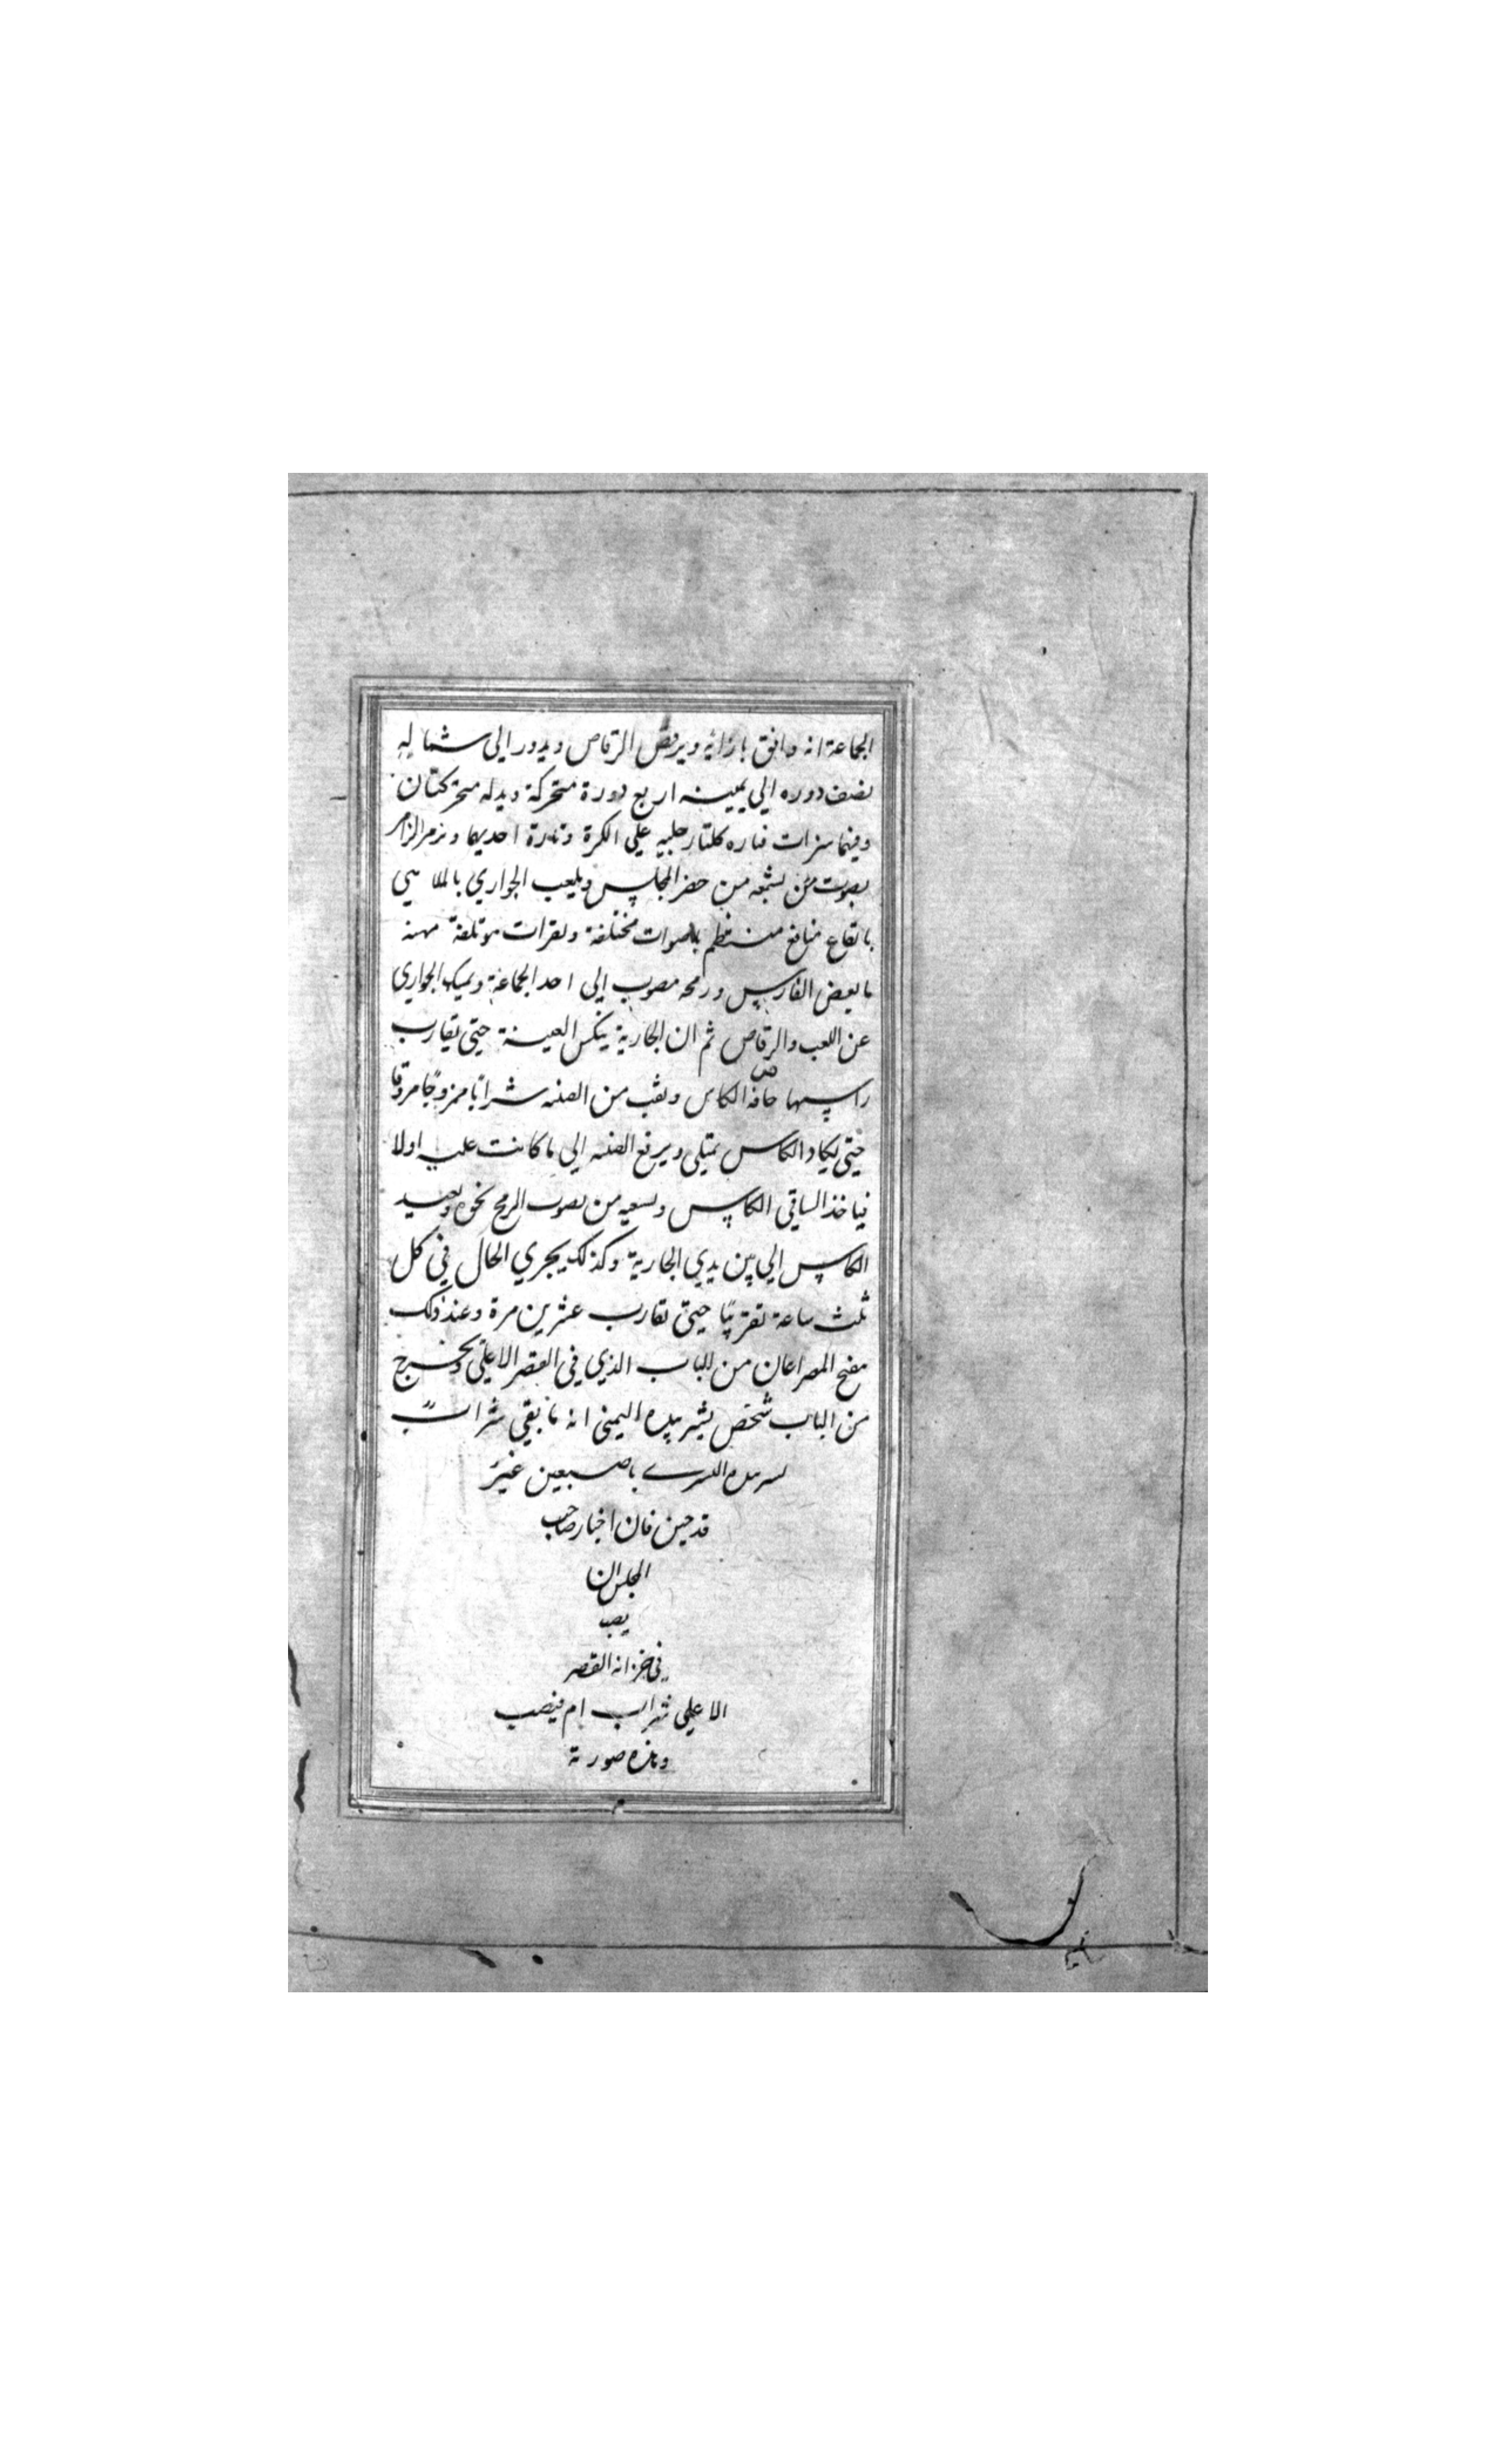 الجماعة انه وافق بازائه ويرقص الرقاص ويدور الي شماله
نصف دوره الي يمينه اربع دورة متحركة ويديه متحركتان
وفيما مرات فتاره كلتا رجليه علي الكرة وتارة احديهما ويزمر الزامر
بصوت من يسمعه من حضر المجلس ويلعب الجواري بالملاهي
بايقاع منتظم باصوات مختلفة ونقرات مؤتلفة
الفارس ورمحه مصوب الي احد الجماعة ويمسك الجواري
عن اللعب والرقاص ثم ان الجارية ينكس القنينة حتي تقارب
راسها حافة الكاس ويصب من القنينه شرابا ممزوجا مروقا
حتي يكاد الكاس يمتلي ويرفع القنينه الي ما كانت عليه اولا
فياخذ الساقي الكاس ويسقيه من يصوب الرمح نحوه ويعيد
الكاس الي بين يدي الجارية وكذلك يجري الحال في كل
ثلث ساعة تقريبا حتي تقارب عشرين مرة وعند ذلك
يفتح المصراعان من الباب الذي في القصر الاعلي ويخرج
من الباب شخص يشير بيده اليمني انه ما بقي شراب
يشير بيده اليسرى باصبعين غير
قدحين فان اختار صاحب
المجلس ان
يصب
في خزانه القصر
الاعلي شراب ام فيصب
وهذه صورته